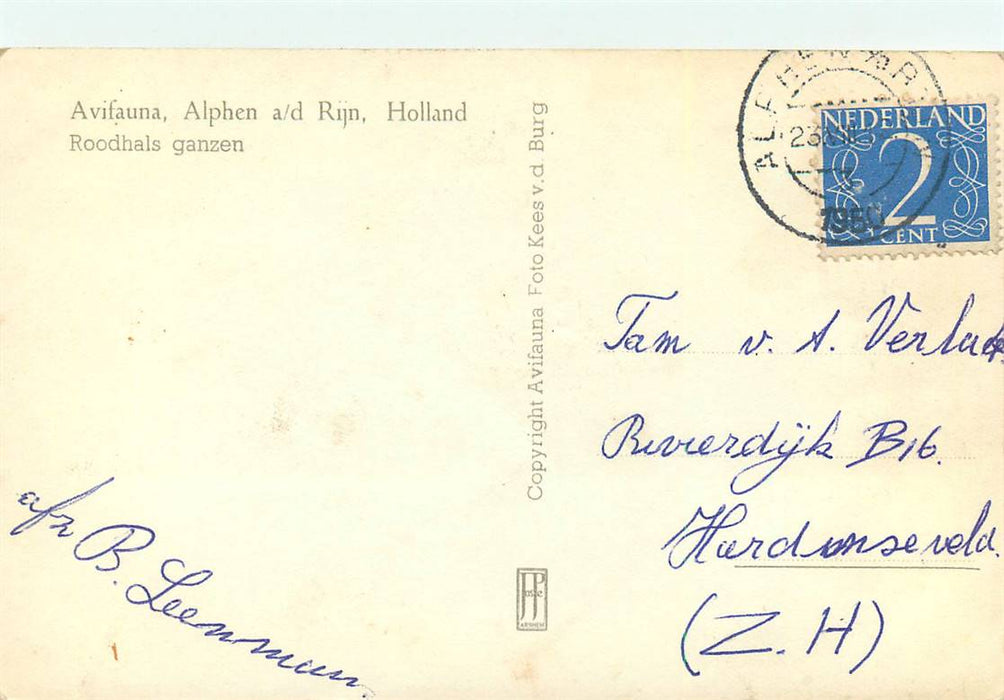 Avifauna, Alphen a/d Rijn, Holland
Roodhals ganzen
Copyright Avifauna Foto Kees v.d. Burg
ALPHEN
1950
NEDERLAND
2
CENT
Fam v. A.
Rivierdijk B16.
Hardinxseveld.
(Z.H)
afz B. Leenman
JosPé
ARNHEM